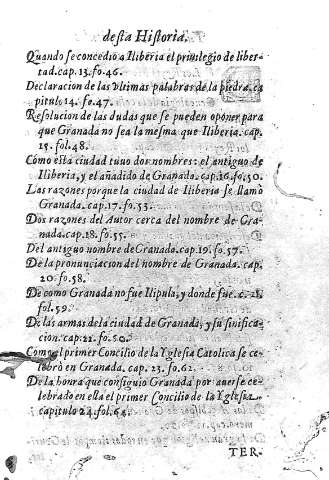 desta Historia.
Quando se concedio a Iliberia el priuilegio de liber-
tad. cap. 13. fo. 46.
Declaracion de las vltimas palabras de la piedra. ca
pitulo 14. fo. 47.
Resolucion de las dudas que se pueden oponer para
que Granada no sea la mesma que Iliberia. cap.
15. fol. 48.
Como esta ciudad tuuo dos nombres: el antiguo de
Iliberia, y el añadido de Granada. cap. 16. fo. 50.
Las razones porque la ciudad de Iliberia se llamò
Granada. cap. 17. fo. 53.
Dos razones del Autor cerca del nombre de Gra-
nada. cap. 18. fo. 55.
Del antiguo nombre de Granada. cap. 19. fo. 57.
De la pronunciacion del nombre de Granada. cap.
20. fo. 58.
De como Granada no fue Ilipula, y donde fue. c. 21.
fol. 59.
De las armas de la ciudad de Granada, y su sinifica-
cion. cap. 22. fo. 50.
Como el primer Concilio de la Yglesia Catolica se ce-
lebrò en Granada. cap. 23. fo. 62.
De la honra que consiguio Granada por auerse ce-
lebrado en ella el primer Concilio de la Yglesia.
capitulo 24. fol. 64.
TER-